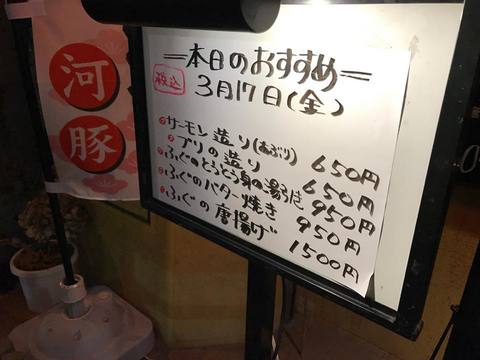 河豚
本日のおすすめ
税込 3月17日(金)
サーモン造り(あぶり) 650円
ブリの造り 650円
ふぐのとうとう身の湯引き 950円
ふぐのバター焼き 950円
ふぐの唐揚げ 1500円